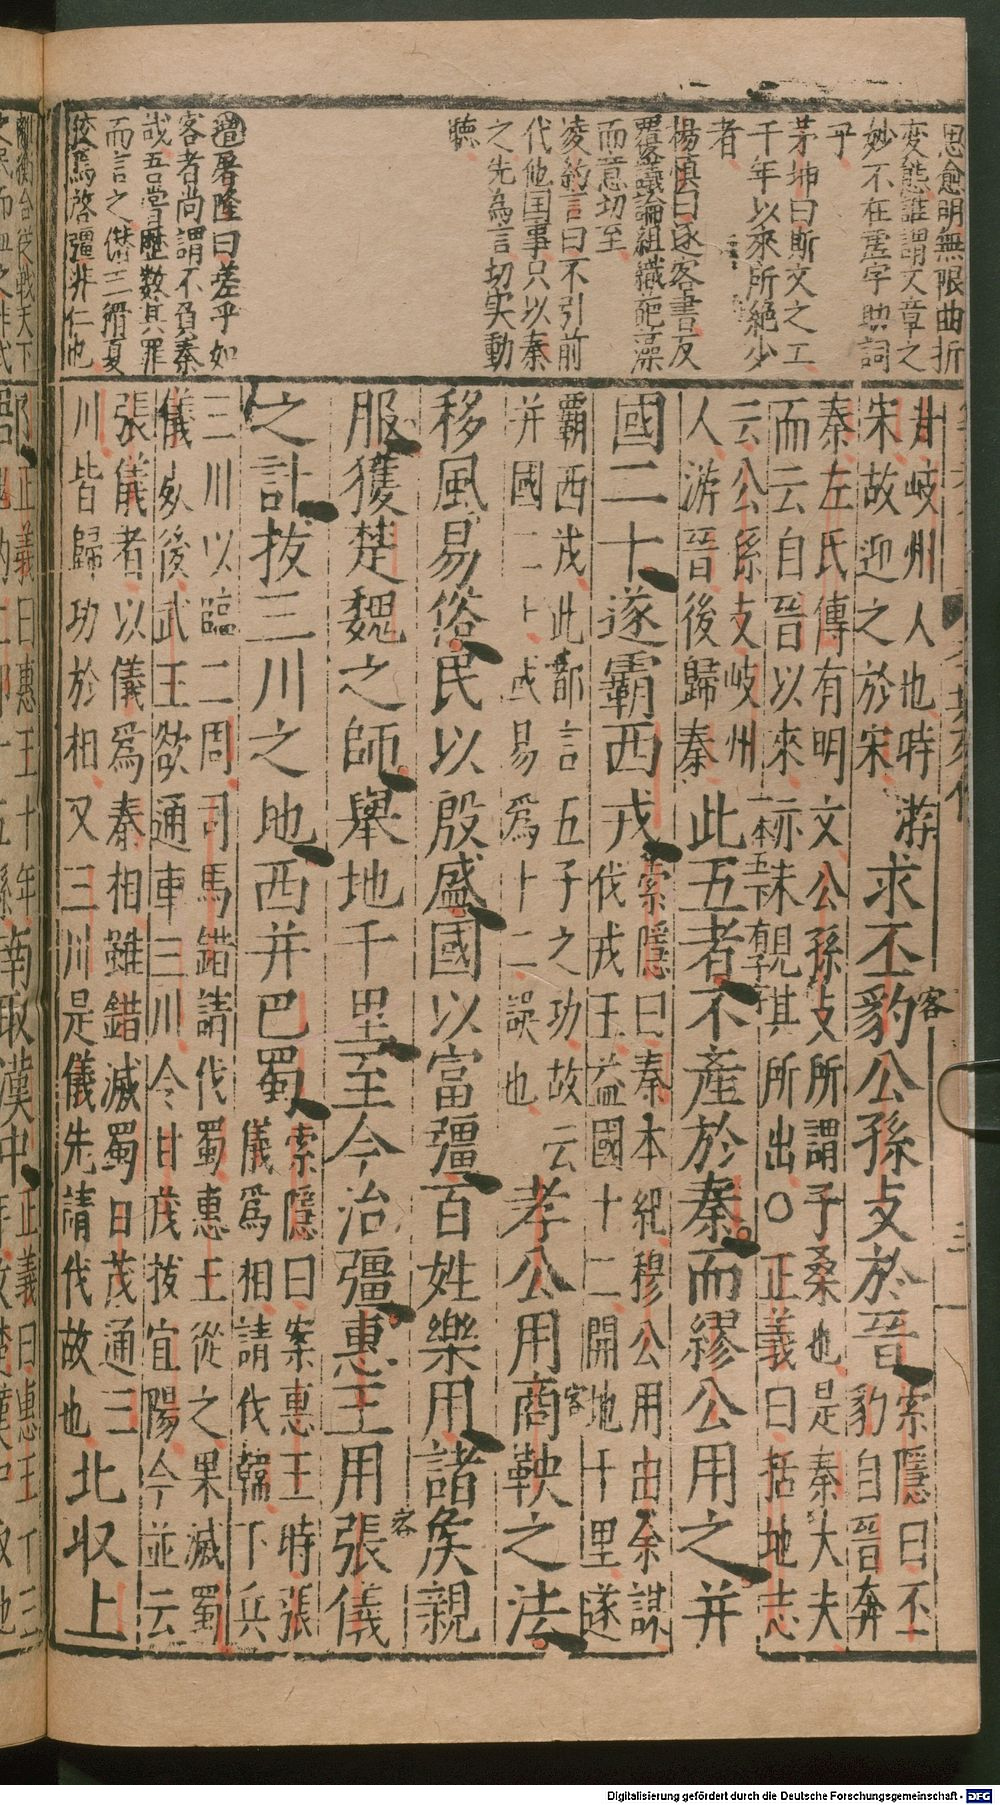 思愈明無限曲折
変態誰謂文章之
妙不在虛字助詞
乎
茅坤曰斯文之工
千年以來所絕少
者
楊慎曰逐客書反
覆議論組織葩藻
而意切至
凌約言曰不引前
代他国事只以秦
之先為言切实動
聴
屠隆曰差乎如
客者尚謂不負秦
哉吾嘗歴数其罪
而言之僭三猾夏
啓彊非仁也
甘岐州人也時游
宋故迎之於宋
求丕豹公孫支於晉
索隱曰丕
豹自晉奔
秦左氏傳有明文公孫支所謂子桑也是秦大夫
而云自晉以來亦未見其所出○正義曰括地志
一本五下有子字
云公孫支岐州
人游晉後歸秦
此五者不產於秦而繆公用之并
國二十遂霸西戎
索隱曰秦本紀穆公用由余謀
伐戎王益國十二開地千里遂
霸西戎此都言五子之功故云
并國二十或易為十二誤也
孝公用商鞅之法
客
移風易俗民以殷盛國以富彊百姓樂用諸侯親
服獲楚魏之師舉地千里至今治彊惠王用張儀
客
之計拔三川之地西并巴蜀
索隱曰案惠王時張
儀為相請伐韓下兵
三川以臨二周司馬錯請伐蜀惠王從之果滅蜀
儀死後武王欲通車三川令甘茂拔宜陽今並云
張儀者以儀為秦相雖錯滅蜀甘茂通三
川皆歸功於相又三川是儀先請伐故也
北収上
客
三
郡
正義曰惠王十年
南取漢中
正義曰惠王十三
Digitalisierung gefördert durch die Deutsche Forschungsgemeinschaft - DFG